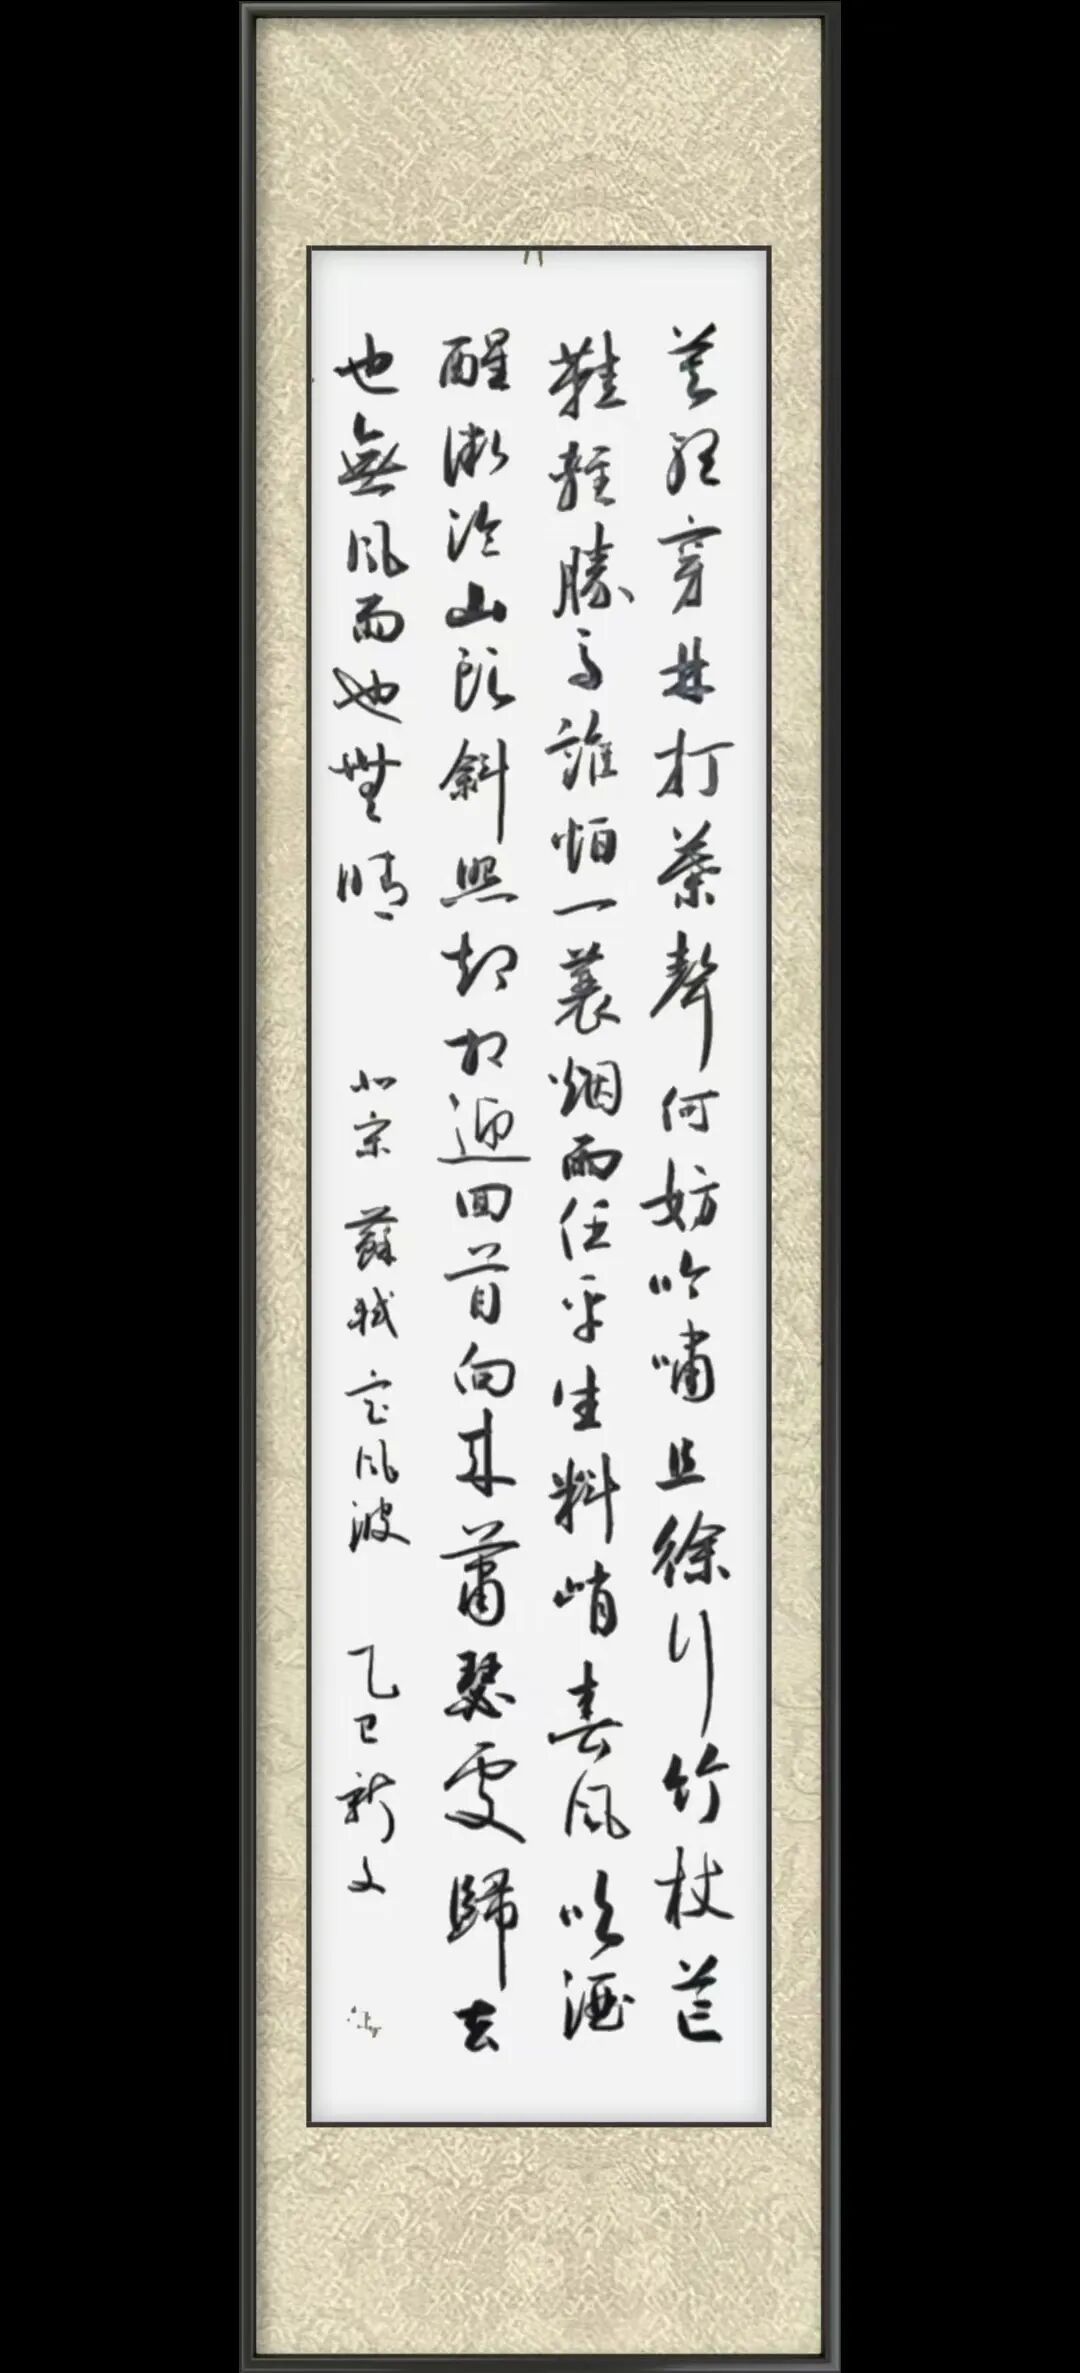 莫聽穿林打葉聲何妨吟嘯且徐行竹杖芒
鞋輕勝馬誰怕一蓑烟雨任平生料峭春風吹酒
醒微冷山頭斜照却相迎回首向來蕭瑟處歸去
也無風雨也無晴 北宋 蘇軾 定風波 乙巳新文